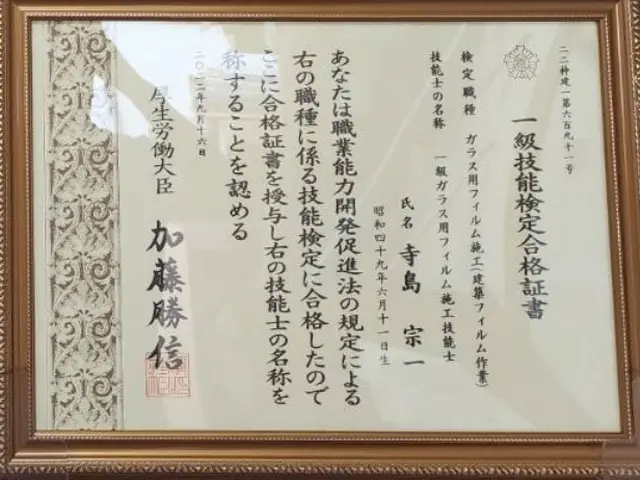 二二神建一第六百九十一号
一級技能検定合格証書
検定職種 ガラス用フィルム施工(建築フィルム作業)
技能士の名称 一級ガラス用フィルム施工技能士
氏名 寺島 宗一
昭和四十九年六月十一日生
あなたは職業能力開発促進法の規定による
右の職種に係る技能検定に合格したので
ここに合格証書を授与し右の技能士の名称を
称することを認める
二〇二二年九月十六日
厚生労働大臣 加藤勝信